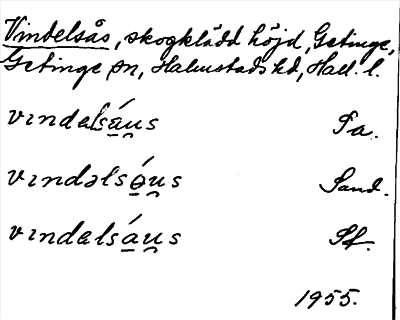 Vindelsås, skogklädd höjd, Getinge,
Getinge sn, Halmstads hd, Hall. l.
vɪndəlsá̱u̯s Pa.
vɪndəlsə̱́u̯s Sand.
vɪndəlsá̱u̯s Sf.
1955.